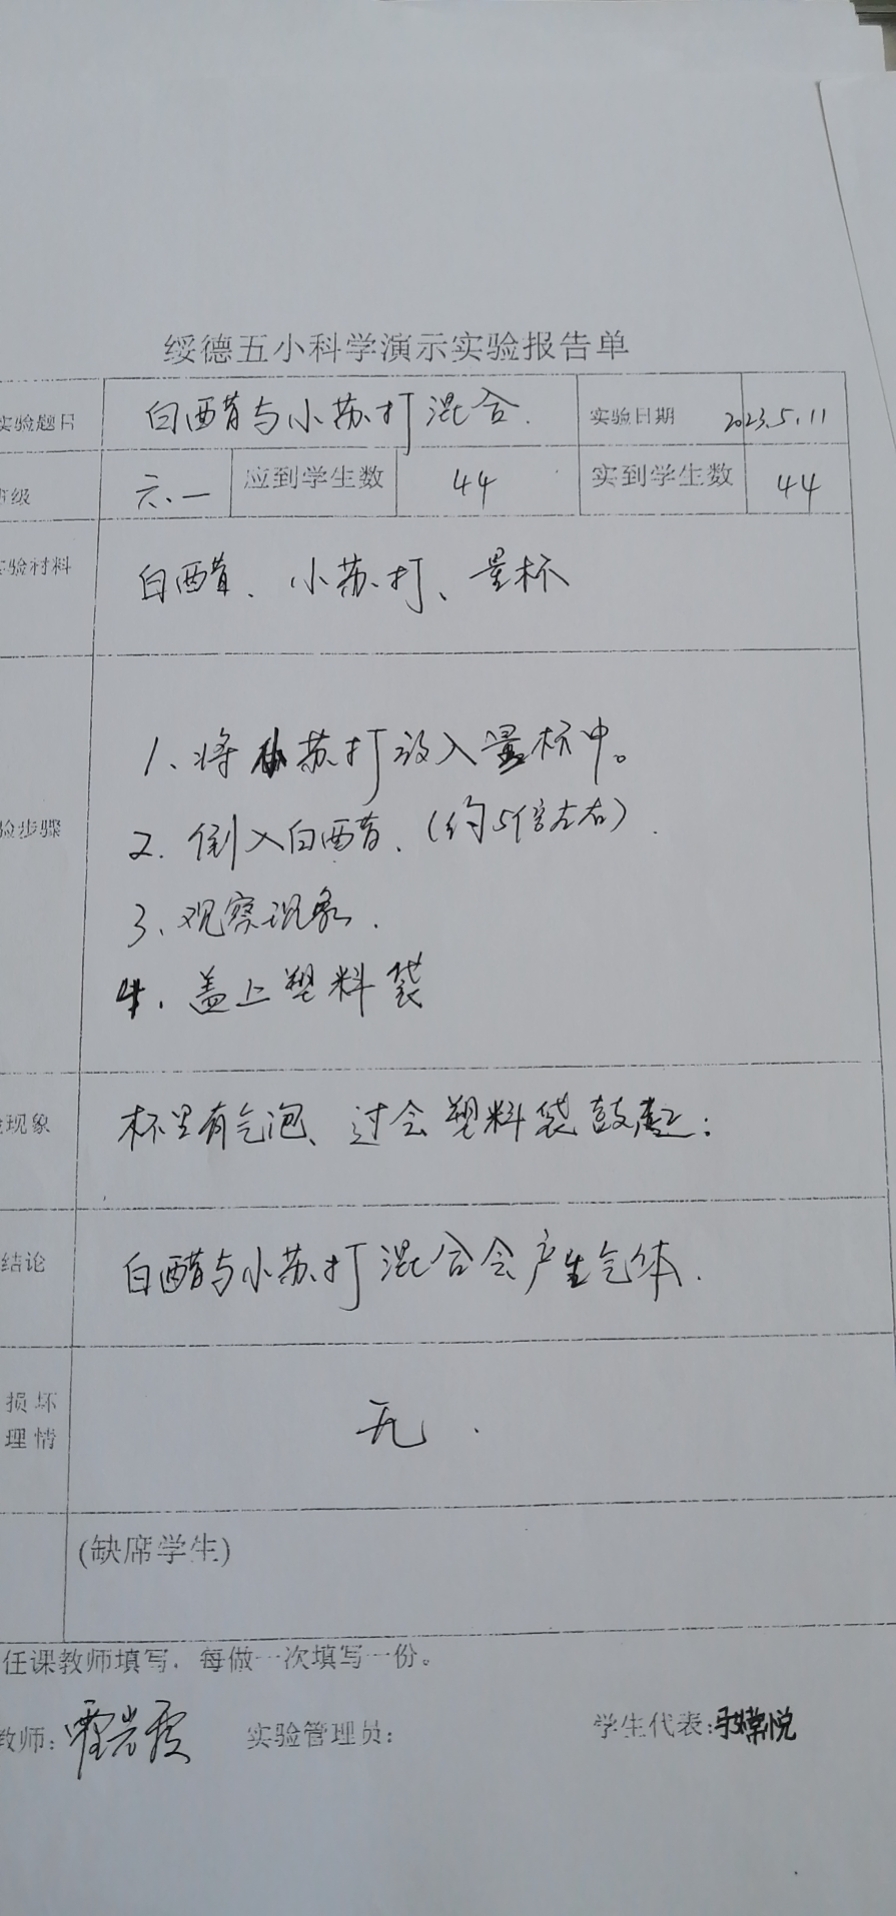 绥德五小科学演示实验报告单
实验题目 白醋与小苏打混合. 实验日期 2023.5.11
班级 六.一 应到学生数 44 实到学生数 44
实验材料 白醋、小苏打、量杯
1、将小苏打放入量杯中。
验步骤
2. 倒入白醋.（约5倍左右）.
3、观察现象.
4. 盖上塑料袋
现象 杯里有气泡、过会塑料袋鼓起;
结论 白醋与小苏打混合会产生气体.
损坏
理情
无.
(缺席学生)
任课教师填写，每做一次填写一份。
教师: 实验管理员: 学生代表: